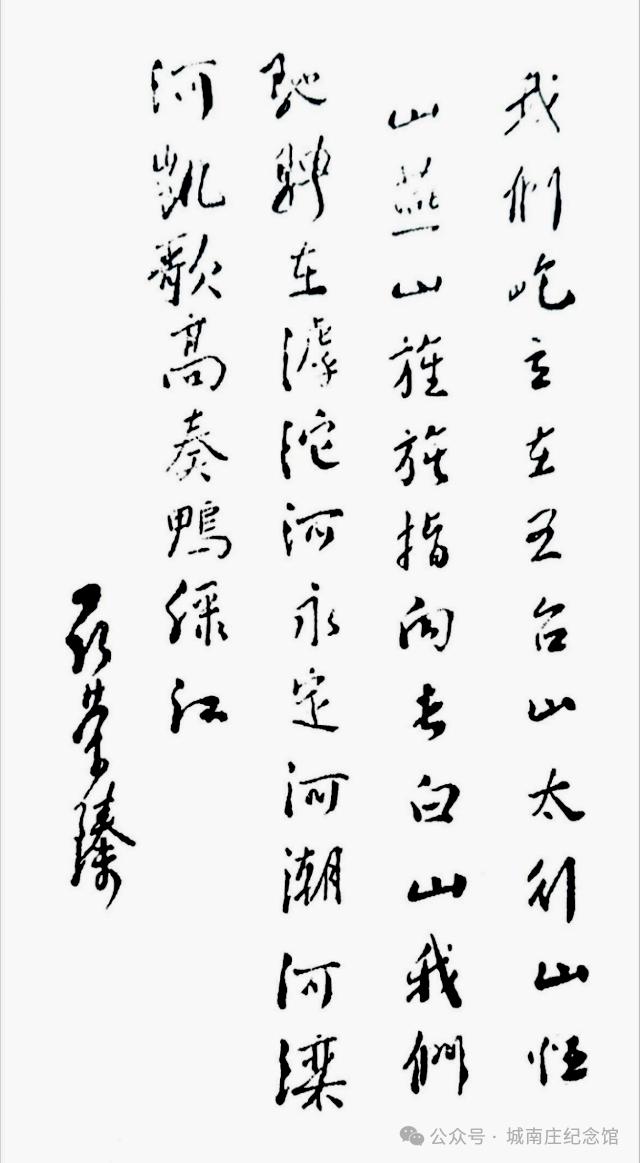 我們屹立在五台山太行山恒
山燕山旌旗指向長白山我們
馳騁在滹沱河永定河潮河灤
河凱歌高奏鴨綠江
聂荣臻
公众号·城南庄纪念馆